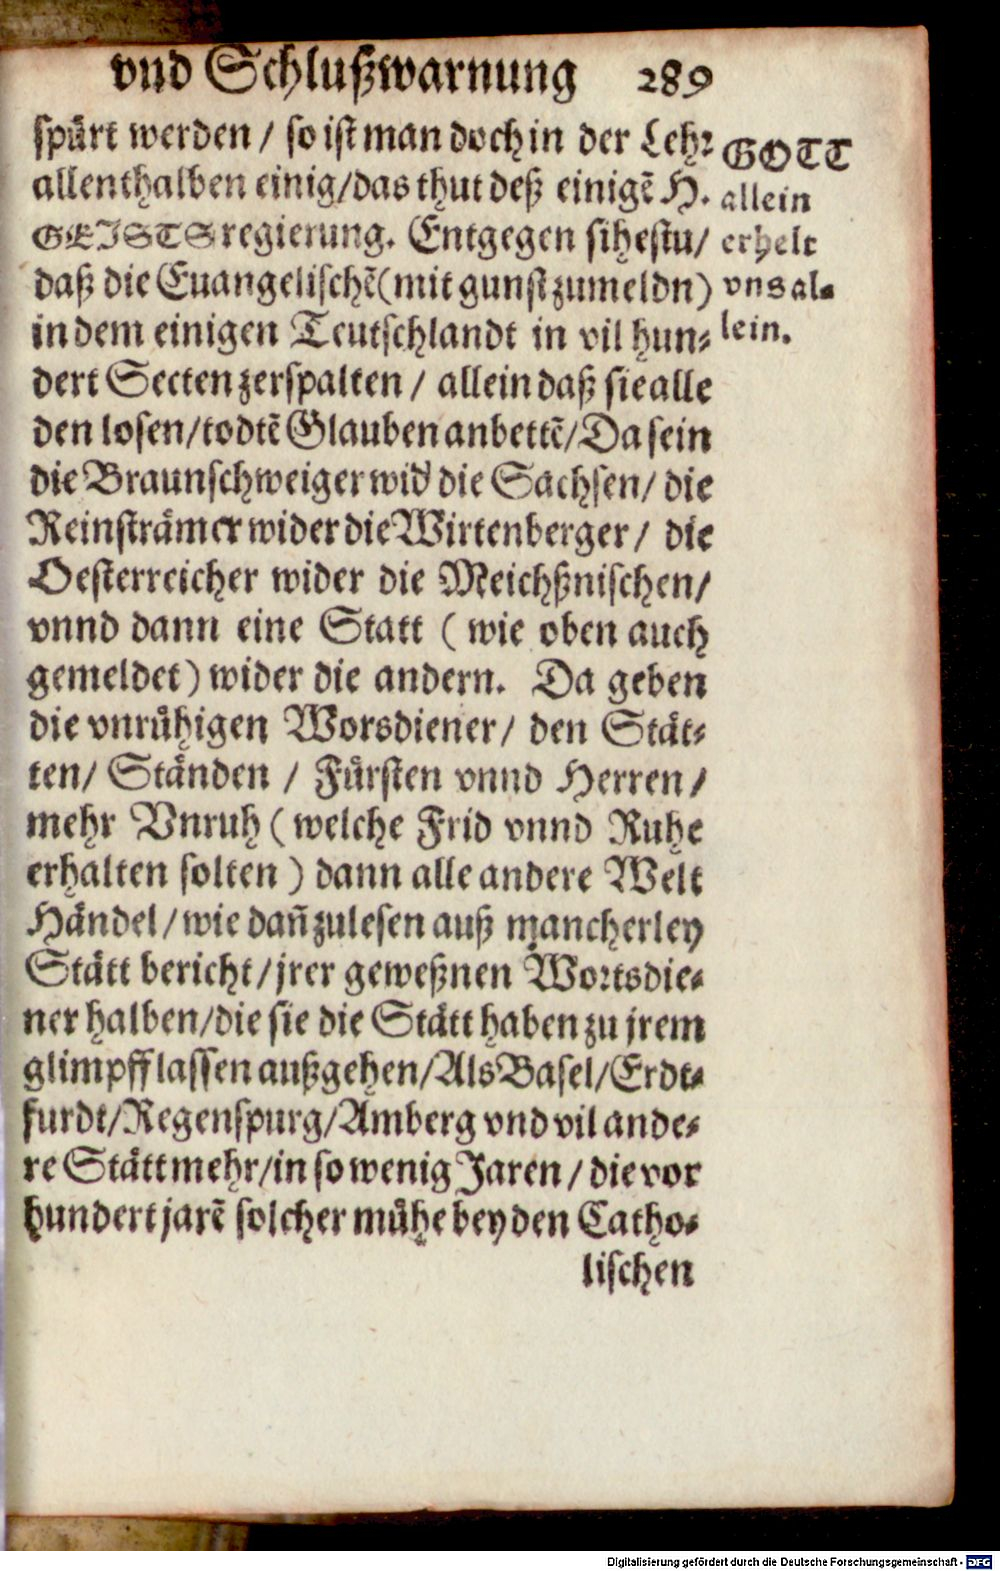 vnd Schlußwarnung 289
spürt werden / so ist man doch in der Lehr
allenthalben einig/das thut deß einigẽ H.
GEISTS regierung. Entgegen sihestu/
daß die Euangelischẽ (mit gunst zumeldn)
in dem einigen Teutschlandt in vil hun-
dert Secten zerspalten / allein daß sie alle
den losen/todtẽ Glauben anbettẽ/Da sein
die Braunschweiger wid' die Sachsen/ die
Reinsträmer wider die Wirtenberger/ die
Oesterreicher wider die Meichßnischen/
vnnd dann eine Statt ( wie oben auch
gemeldet) wider die andern. Da geben
die vnrühigen Worsdiener/ den Stät-
ten/ Ständen / Fürsten vnnd Herren/
mehr Vnruh ( welche Frid vnnd Ruhe
erhalten solten ) dann alle andere Welt
Händel/wie dañ zulesen auß mancherley
Stätt bericht/jrer geweßnen Wortsdie-
ner halben/die sie die Stätt haben zu jrem
glimpff lassen außgehen/Als Basel/Erdt-
furdt/Regenspurg/Amberg vnd vil ande-
re Stätt mehr/in so wenig Jaren / die vor
hundert jarẽ solcher mühe bey den Catho-
lischen
GOTT
allein
erhelt
vns al-
lein.
Digitalisierung gefördert durch die Deutsche Forschungsgemeinschaft - DFG